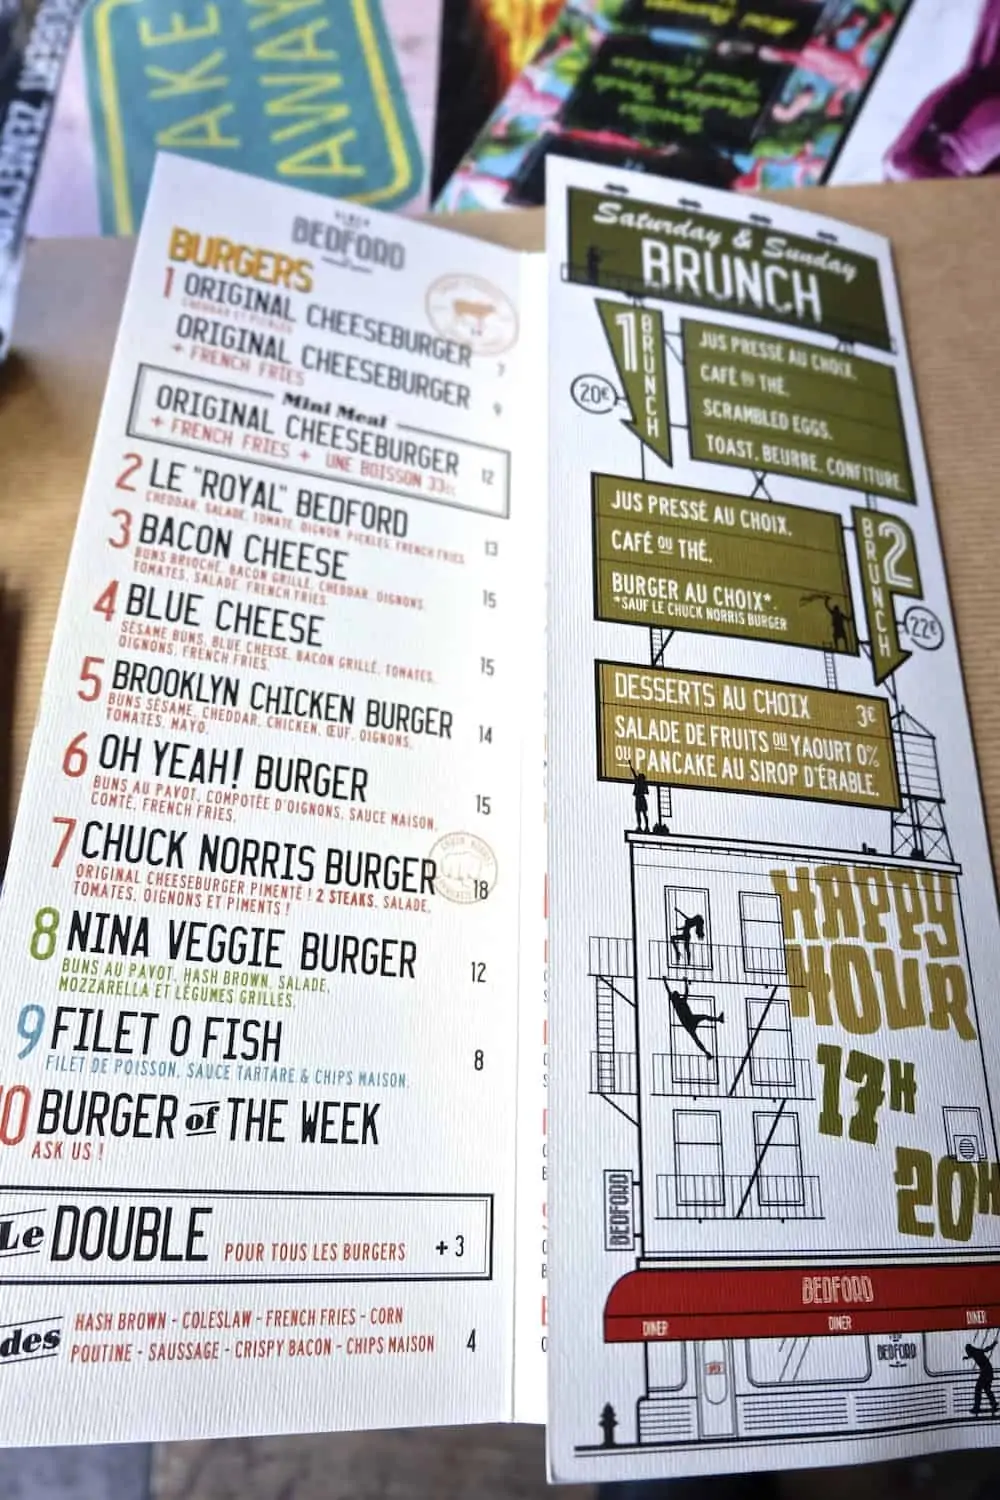 TAKE
AWAY
BEDFORD
BURGERS
1 ORIGINAL CHEESEBURGER 7
CHEDDAR ET PICKLES
ORIGINAL CHEESEBURGER 9
+ FRENCH FRIES
Mini Meal
ORIGINAL CHEESEBURGER 12
+ FRENCH FRIES + UNE BOISSON 33CL
2 LE "ROYAL" BEDFORD 13
CHEDDAR, SALADE, TOMATE, OIGNON, PICKLES, FRENCH FRIES
3 BACON CHEESE 15
BUNS BRIOCHE, BACON GRILLÉ, CHEDDAR, OIGNONS,
TOMATES, SALADE, FRENCH FRIES.
4 BLUE CHEESE 15
SÉSAME BUNS, BLUE CHEESE, BACON GRILLÉ, TOMATES,
OIGNONS, FRENCH FRIES.
5 BROOKLYN CHICKEN BURGER 14
BUNS SÉSAME, CHEDDAR, CHICKEN, ŒUF, OIGNONS,
TOMATES, MAYO.
6 OH YEAH! BURGER 15
BUNS AU PAVOT, COMPOTÉE D'OIGNONS, SAUCE MAISON,
COMTÉ, FRENCH FRIES.
7 CHUCK NORRIS BURGER 18
ORIGINAL CHEESEBURGER PIMENTÉ ! 2 STEAKS, SALADE,
TOMATES, OIGNONS ET PIMENTS !
8 NINA VEGGIE BURGER 12
BUNS AU PAVOT, HASH BROWN, SALADE,
MOZZARELLA ET LÉGUMES GRILLÉS.
9 FILET O FISH 8
FILET DE POISSON, SAUCE TARTARE & CHIPS MAISON.
10 BURGER of THE WEEK
ASK US !
Le DOUBLE POUR TOUS LES BURGERS + 3
des
HASH BROWN - COLESLAW - FRENCH FRIES - CORN
POUTINE - SAUSSAGE - CRISPY BACON - CHIPS MAISON 4
Saturday & Sunday
BRUNCH
1 BRUNCH
20€
JUS PRESSÉ AU CHOIX.
CAFÉ OU THÉ.
SCRAMBLED EGGS.
TOAST, BEURRE, CONFITURE.
2 BRUNCH
22€
JUS PRESSÉ AU CHOIX.
CAFÉ OU THÉ.
BURGER AU CHOIX*.
*SAUF LE CHUCK NORRIS BURGER
DESSERTS AU CHOIX 3€
SALADE DE FRUITS OU YAOURT 0%
OU PANCAKE AU SIROP D'ÉRABLE.
HAPPY
HOUR
17H
20H
BEDFORD
BEDFORD
DINER DINER DINER
BEDFORD